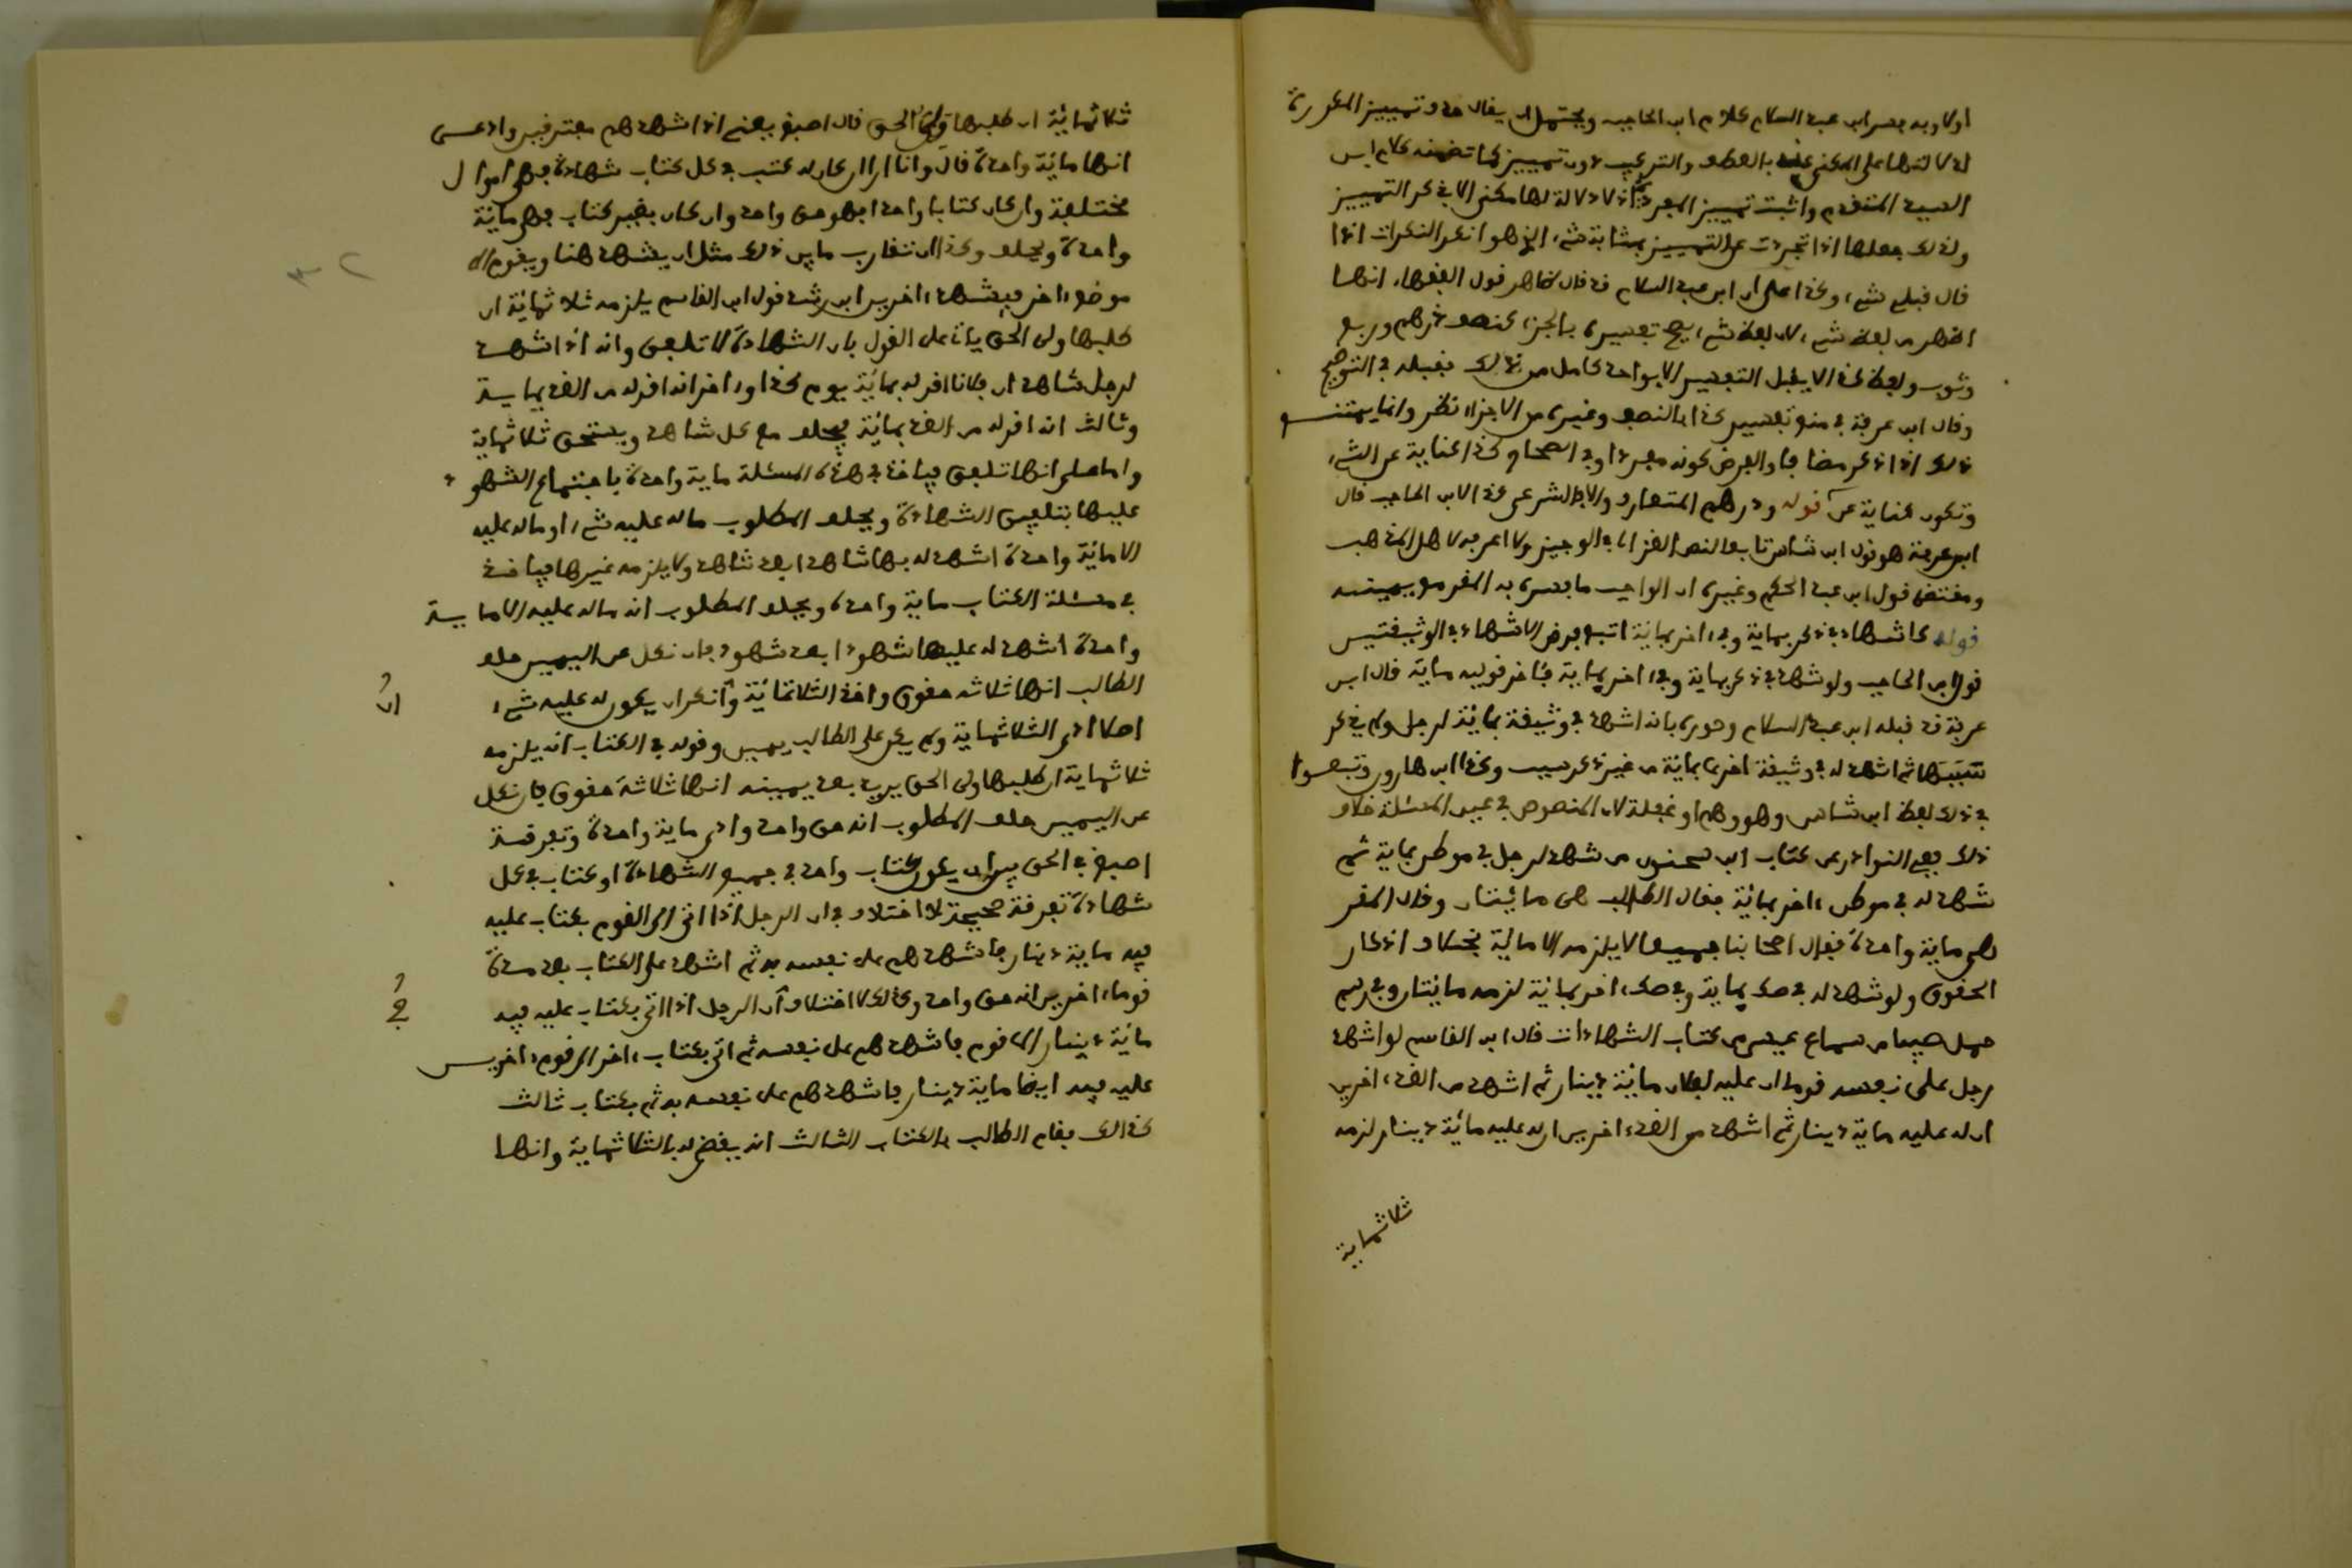 اولا وبه فسر ابن عبد السلام كلام ابن الحاجب ويحتمل ان يقال حذف تمييز المكررة
لدلالتها على المكنى عنه بالعطف والتركيب دون تمييز كما تضمنه كلام ابن
السيد المتقدم واثبت تمييز المفردة اذ لا دلالة لها معنى الا بذكر التمييز
ولذلك جعلها اذا تجردت عن التمييز بمثابة شيء الذي هو انكر النكرات اذا
قال قبلي شيء وكذا على ان ابن عبد السلام قد قال ظاهر قول الفقهاء انها
اظهر من لفظ شيء لان لفظ شيء يصح تفسيره بالجزء كنصف درهم وربع
وثوب ولفظ كذا لا يقبل التفسير الا بواحد كامل من ذلك فقبله في التوضيح
وقال ابن عرفة في منع تفسير كذا بالنصف وغيره من الاجزاء نظر وانما يمتنع
ذلك اذا ذكر مضافا والفرض كونه مفردا وفي الصحاح كذا كناية عن الشيء
وتكون كناية عن قوله ودرهم المتعارف والا فالشرعي كذا لابن الحاجب قال
ابن عرفة هو قول ابن شاس تابعا لنص الغزالي في الوجيز ولا اعرفه لاهل المذهب
ومقتضى قول ابن عبد الحكم وغيره ان الواجب ما فسره به المقر مع يمينه
قوله كاشهاد في ذكر بمائة وفي اخر بمائة اتبع فرض الاشهاد في الوثيقتين
قول ابن الحاجب ولو شهد في ذكر بماية وفي اخر بماية فثاخر قوليه ماية قال ابن
عرفة قد قبله ابن عبد السلام وصوره بانه اشهد في وثيقة بمائة لرجل ولم يذكر
سببها ثم اشهد له في وثيقة اخرى بمائة من غير ذكر سبب وكذا ابن هارون وتبعوا
في ذلك لفظ ابن شاس وهو وهم او غفلة لان المنصوص في عين المسئلة خلاف
ذلك ففي النوادر عن كتاب ابن سحنون من شهد لرجل في موطن بماية ثم
شهد له في موطن اخر بمائة فقال الطالب هي مائتان وقال المقر
هي ماية واحدة فقال اصحابنا جميعا لا يلزمه الا مائة بخلاف اذكار
الحقوق ولو شهد له في صك بماية وفي صك اخر بمائة لزمه مائتان وفي رسم
حمل صبيا من سماع عيسى من كتاب الشهادات قال ابن القاسم لو اشهد
رجل على نفسه قوما ان عليه لفلان مائة دينار ثم اشهد من الغد اخرين
ان له عليه ماية دينار ثم اشهد من الغد اخرين ان له عليه مائة دينار لزمه
ثلاثماية
ثلاثمائة ان طلبها ولي الحق قال اصبغ يعني اذا اشهدهم مفترقين وادعى
انها مائة واحدة قال وانا ارى ان كان له كتب في كل كتاب شهادة فهي اموال
مختلفة وان كان كتابا واحدا فهو حق واحد وان كان بغير كتاب فهي مائة
واحدة ويحلف وكذا ان تقارب ما بين ذلك مثل ان يشهد هنا ويقوم الى
موضع اخر فيشهد اخرين ابن رشد قول ابن القاسم يلزمه ثلاثمائة ان
طلبها ولي الحق يأتي على القول بان الشهادة لا تلفق وانه اذا شهد
لرجل شاهد ان فلانا اقر له بمائة يوم كذا واخر انه اقر له من الغد بماية
وثالث انه اقر له من الغد بمائة يحلف مع كل شاهد ويستحق ثلاثماية
واما على انها تلفق فياخذ في هذه المسئلة ماية واحدة باجتماع الشهود
عليها بتلفيق الشهادة ويحلف المطلوب ماله عليه شيء او ماله عليه
الا مائة واحدة اشهد له بها شاهدا بعد شاهد ولا يلزمه غيرها فياخذ
في مسئلة الكتاب ماية واحدة ويحلف المطلوب انه ماله عليه الا ماية
واحدة اشهد له عليها شهودا بعد شهود فان نكل عن اليمين حلف
الطالب انها ثلاثة حقوق واخذ الثلاثمائة وان انكر ان يكون له عليه شيء
اصلا ادى الثلاثماية ولم يكن على الطالب يمين وقوله في الكتاب انه يلزمه
ثلاثماية ان طلبها ولي الحق يريد بعد يمينه انها ثلاثة حقوق فان نكل
عن اليمين حلف المطلوب انه حق واحد وادى ماية واحدة وتفرقة
اصبغ في الحق بين ان يكون كتاب واحد في جميع الشهادة او كتاب في كل
شهادة تفرقة صحيحة لا اختلاف في ان الرجل اذا اتى الى القوم بكتاب عليه
فيه ماية دينار فاشهدهم على نفسه به ثم اشهد على الكتاب بعد مدة
قوما اخرين انه حق واحد وكذلك لا اختلاف ان الرجل اذا اتى بكتاب عليه فيه
مائة دينار الى قوم فاشهدهم على نفسه ثم اتى بكتاب اخر الى قوم اخرين
عليه فيه ايضا ماية دينار فاشهدهم على نفسه به ثم بكتاب ثالث
كذلك فقام الطالب بالكتاب الثالث انه يقضى له بالثلاثماية وانها